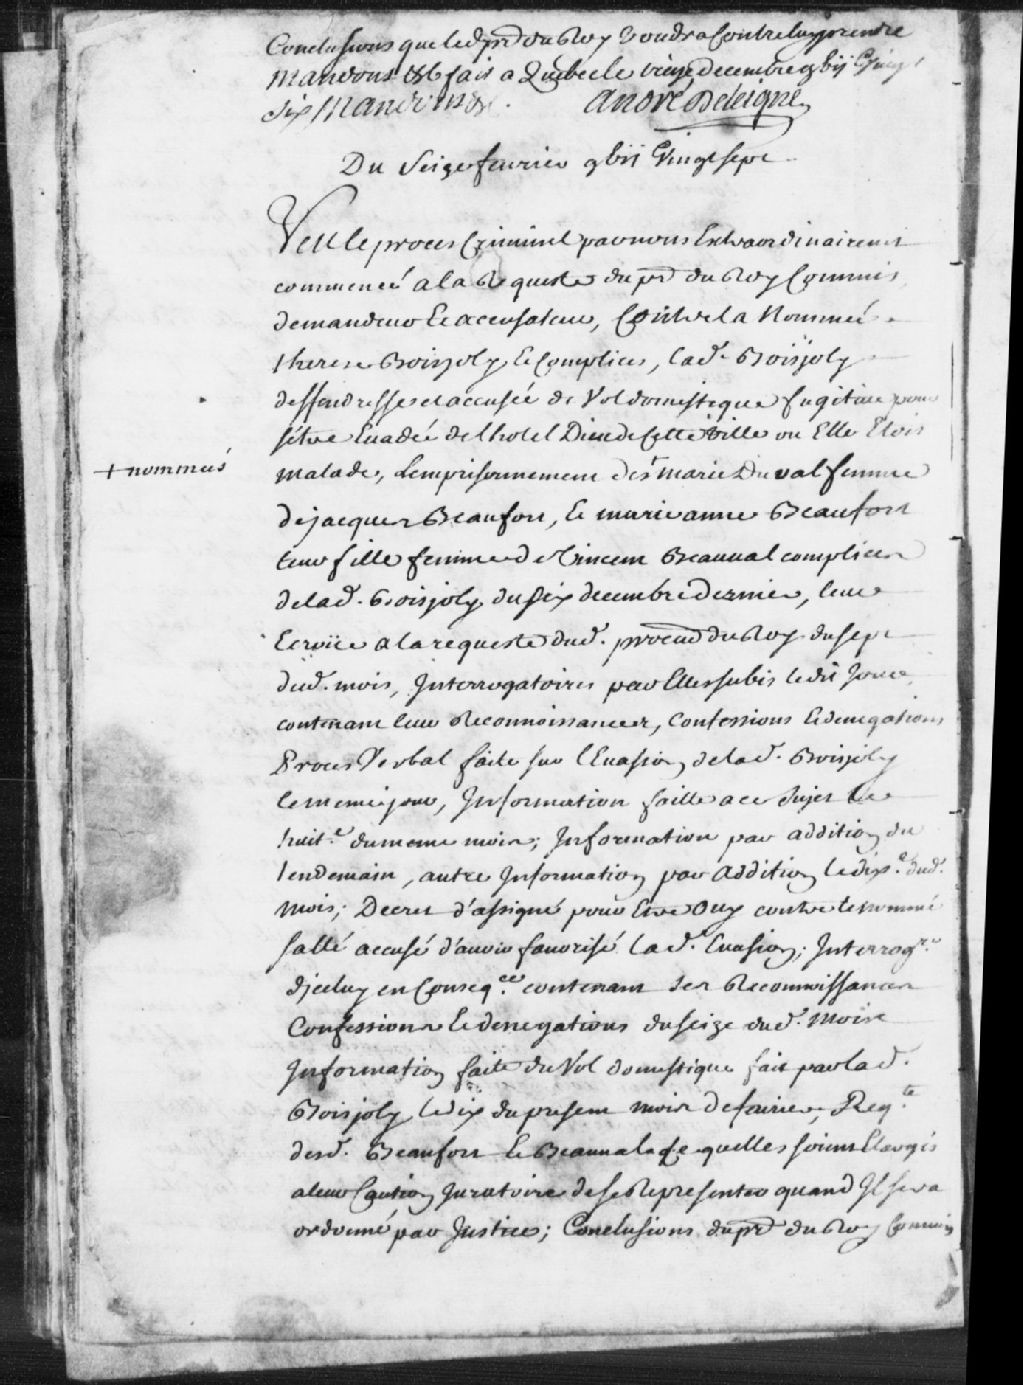 Conclusions que led. pr. du Roy Voudra Contre luy prendre
mandons &c fait a Quebec le decembre gbii Vingt
six Mandons &c. André Deleigne
Du Seize fevrier gbii Vingt sept
Veu le proces Criminel par nous Extraordinairemt
commencé a la Requeste du pr. du Roy Commis
demandeur Et accusateur, Contre la Nommée
therese Boisjoly Et Complices, lad. Boisjoly
deffenderesse et accusée de Vol domestique fugitive pour
sétre Evadée de lhotel Dieu de Cette Ville ou Elle Etois
+ nommés
malade, Lemprisonnement des + marie Duval femme
de jacques Beaufort, Et marie anne Beaufort
leur fille femme de Vincent Beauval complices
de lad. Boisjoly du six decembre dernier, leur
Ecroüe a la requeste dud. procur. du Roy du sept
dud. mois, Interrogatoires par Elles subis ledit Jour
contenant leur Reconnoissances, Confessions Et denegations
Proces Verbal faite sur l'Evasion de lad. Boisjoly
le meme jour, Information faitte a ce Sujet le
huit.e du meme mois; Information par addition du
lendemain, autre Information par addition le dix.e dud.
mois; Decret d'assigné pour Etre Ouy contre le nommé
Sallé accusé d'avoir favorisé lad. Evasion; Interrogre
d'jceluy en Conseq.ce contenant ses Reconnoissances
Confessions Et denegations du seize dud. Mois
Information faite du Vol domestique fait par lad.
Boisjoly le dix du present mois de fevrier, Req.te
desd. Beaufort Et Beauval a ce quelles soient Elargis
a leur Caution Juratoire de se Representer quand Il sera
ordonné par Justice; Conclusions du pr. du Roy Commis